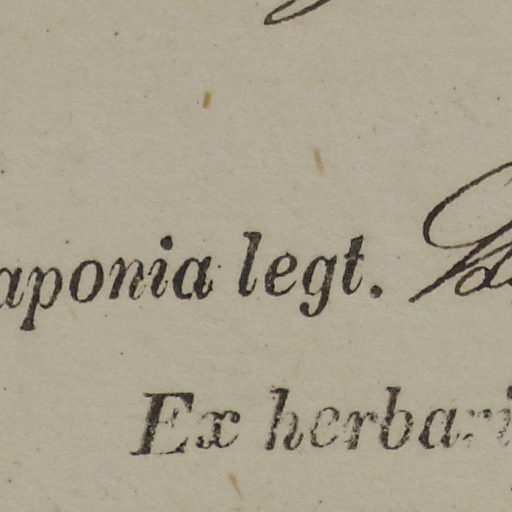 aponia legt.
Ex herbari